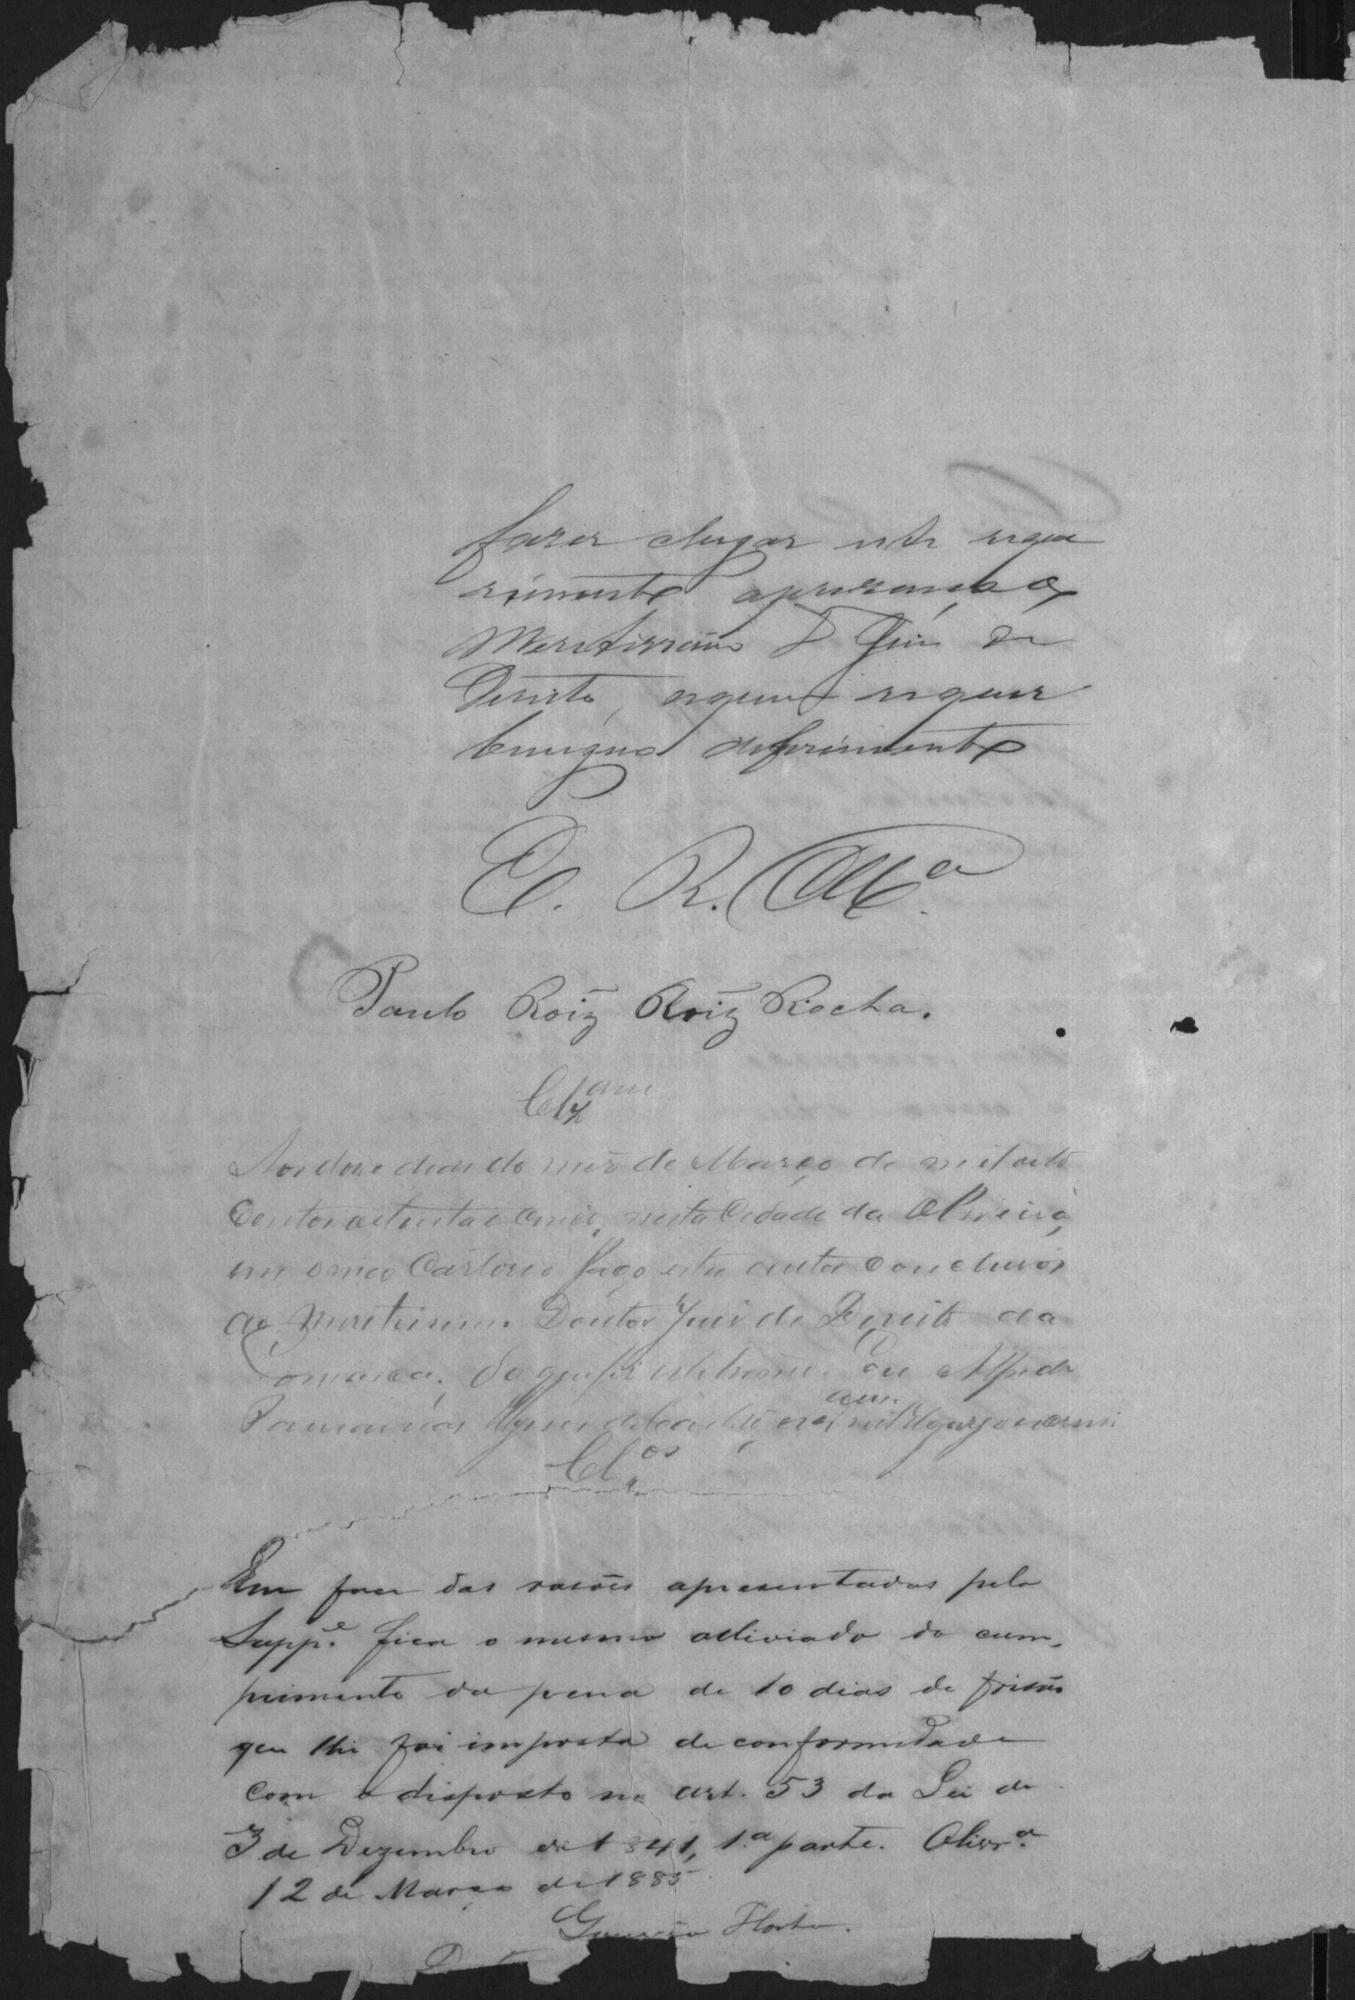 fazer chegar este reque
rimento a presença do
Meritissimo D.r Juiz de
Direito, a quem requer
benigno deferimento
E. R. M.ce
Paulo Roiz Roiz Rocha.
Cl.zam
Aos doze dias do mez de Março de mil oito
Centos oitenta e cinco, nesta Cidade da Oliveira,
em o meo Cartorio faço estes autos conclusos
ao Meritissimo Doutor Juiz de Direito da
Comarca. Do que fiz este termo. Eu Alfredo
Cl.os
Em face das rasões apresentadas pelo
Supp.e fica o mesmo alliviado do cum-
primento da pena de 10 dias de prisão
que lhe foi imposta de conformidade
com o disposto no art. 53 da Lei de
3 de Dezembro de 1841, 1.a parte. Olivr.a
12 de Março de 1885
Horta.